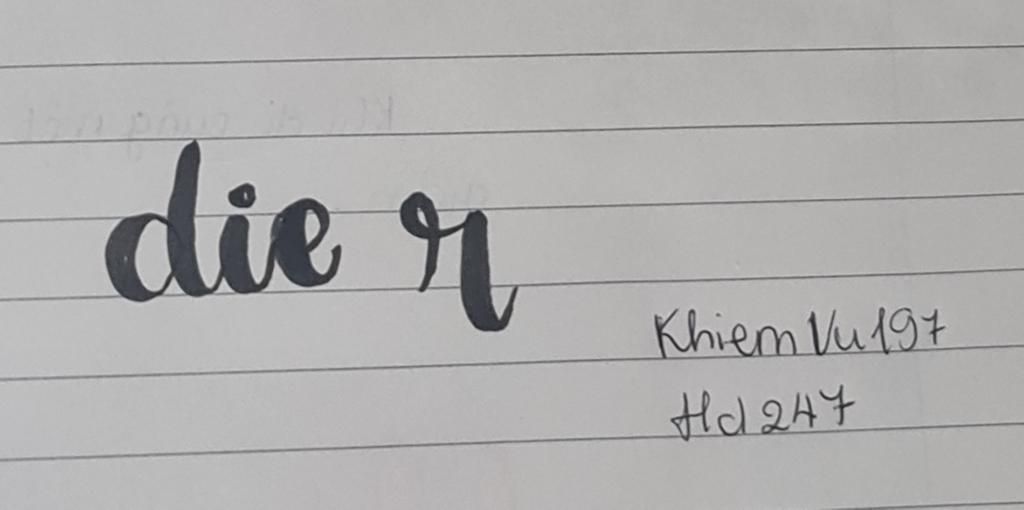 die r
Khiem Vu 197
Hd 247